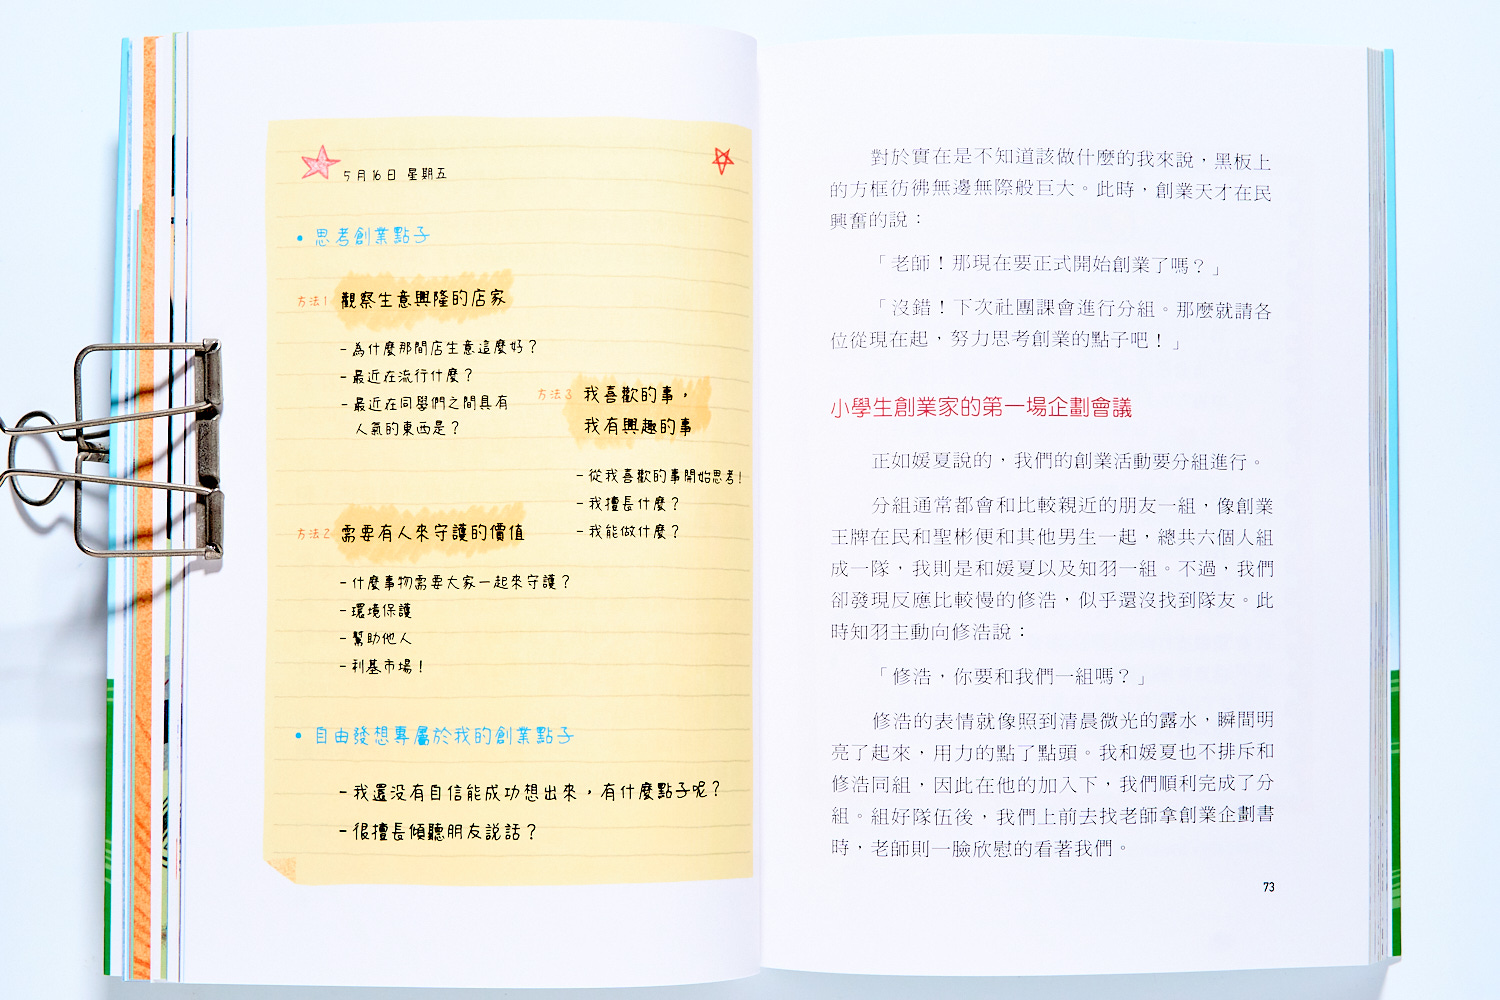 5月16日 星期五
• 思考創業點子
方法1 觀察生意興隆的店家
- 為什麼那間店生意這麼好？
- 最近在流行什麼？
- 最近在同學們之間具有
人氣的東西是？
方法2 需要有人來守護的價值
- 什麼事物需要大家一起來守護？
- 環境保護
- 幫助他人
- 利基市場！
方法3 我喜歡的事，
我有興趣的事
- 從我喜歡的事開始思考！
- 我擅長什麼？
- 我能做什麼？
• 自由發想專屬於我的創業點子
- 我還沒有自信能成功想出來，有什麼點子呢？
- 很擅長傾聽朋友說話？
對於實在是不知道該做什麼的我來說，黑板上
的方框彷彿無邊無際般巨大。此時，創業天才在民
興奮的說：
「老師！那現在要正式開始創業了嗎？」
「沒錯！下次社團課會進行分組。那麼就請各
位從現在起，努力思考創業的點子吧！」
小學生創業家的第一場企劃會議
正如媛夏說的，我們的創業活動要分組進行。
分組通常都會和比較親近的朋友一組，像創業
王牌在民和聖彬便和其他男生一起，總共六個人組
成一隊，我則是和媛夏以及知羽一組。不過，我們
卻發現反應比較慢的修浩，似乎還沒找到隊友。此
時知羽主動向修浩說：
「修浩，你要和我們一組嗎？」
修浩的表情就像照到清晨微光的露水，瞬間明
亮了起來，用力的點了點頭。我和媛夏也不排斥和
修浩同組，因此在他的加入下，我們順利完成了分
組。組好隊伍後，我們上前去找老師拿創業企劃書
時，老師則一臉欣慰的看著我們。
73